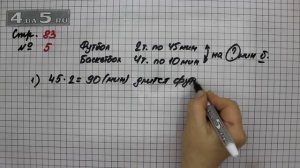 4DA5.RU
Стр. 83
№ 5
Футбол 2т. по 45 мин
Баскетбол 4т. по 10 мин
на ? мин б.
1) 45 · 2 = 90 (мин) длится фут